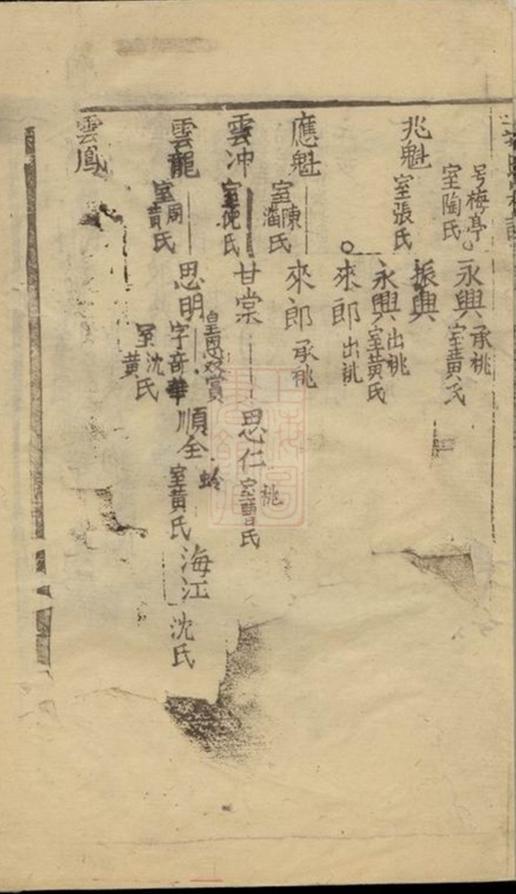 号梅亭
室陶氏
永興
承祧
室黄氏
兆魁
室張氏
振興
永興
出祧
室黄氏
來郎
出祧
應魁
室陳
潘氏
來郎
承祧
雲冲
室倪氏
甘棠
思仁
祧
室曹氏
雲龍
室周
黄氏
思明
皇恩双賞
字奇華
室沈
黄氏
順全
蛉
室黄氏
海江
沈氏
雲鳳